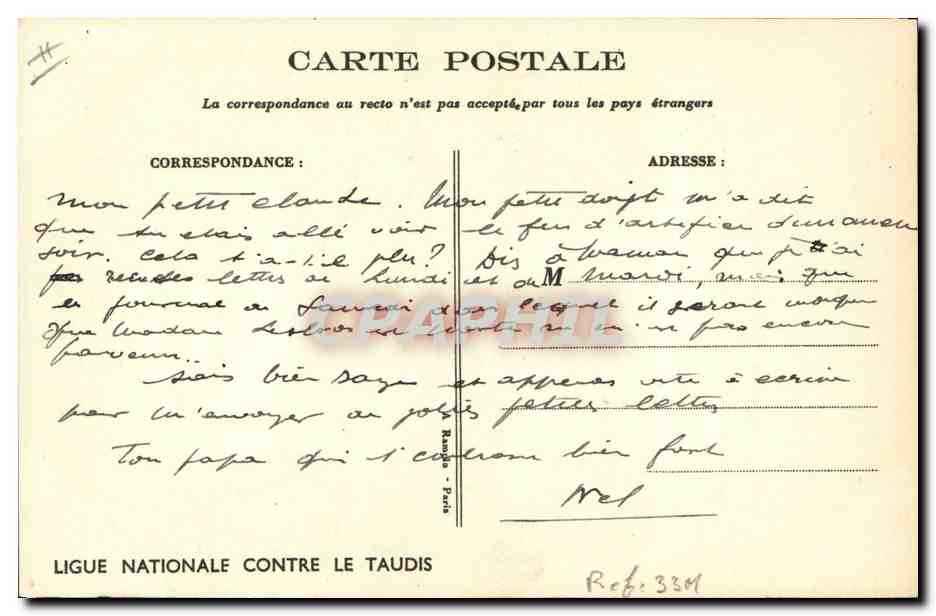 CARTE POSTALE
La correspondance au recto n'est pas acceptée par tous les pays étrangers
CORRESPONDANCE :
ADRESSE :
mon petit claude. Mon petit doigt m'a dit
que tu etais allé voir le feu d'artifice dimanche
soir. Cela t'a-t-il plu? Dis à maman que j'ai
lettres de Lundi et de M mardi, mais que
le journal de Samedi dans lequel il serait marqué
que Madame est morte ne m'est pas encore
parvenu..
Sois bien sage et apprends vite à ecrire
pour m'envoyer de jolies petites lettres
Ton papa qui t'embrasse bien fort
Nel
Ramela - Paris
LIGUE NATIONALE CONTRE LE TAUDIS
Ref. 33M
CPAPHIL